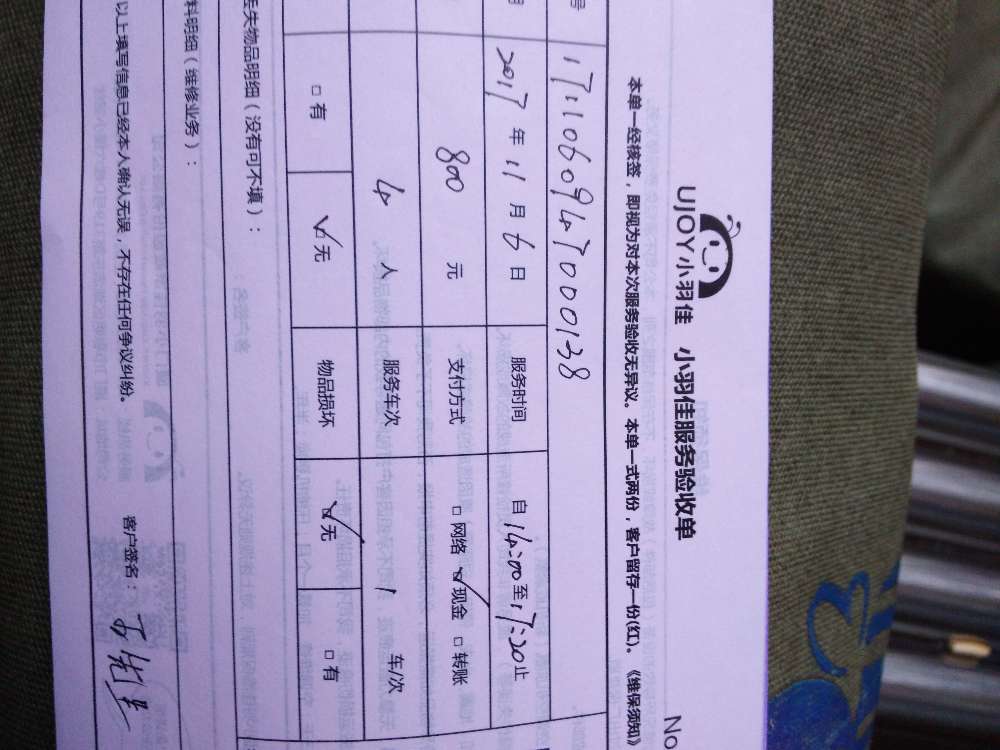 UJOY小羽佳 小羽佳服务验收单
No
本单一经核签，即视为对本次服务验收无异议。本单一式两份，客户留存一份(红)。《维保须知》
号 17110609470000138
2017 年 11 月 6 日 服务时间 自 14:00 至 17:20 止
800 元 支付方式 □ 网络 ☑ 现金 □ 转账
4 人 服务车次 1 车/次
□ 有 ☑ 无 物品损坏 ☑ 无 □ 有
丢失物品明细（没有可不填）：
料明细（维修业务）：
以上填写信息已经本人确认无误，不存在任何争议纠纷。 客户签名：